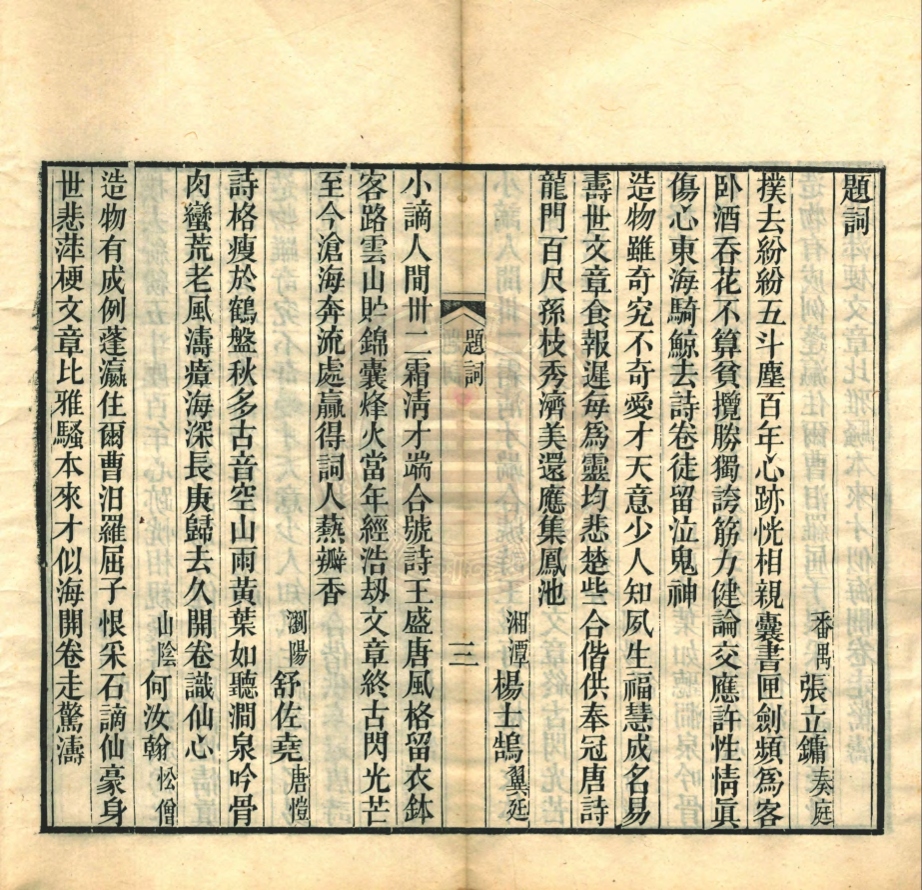 題詞
番禺張立鏞奏庭
撲去紛紛五斗塵百年心跡恍相親囊書匣劍頻爲客
卧酒吞花不算貧攬勝獨誇筋力健論交應許性情眞
傷心東海騎鯨去詩卷徒留泣鬼神
造物雖奇究不奇愛才天意少人知夙生福慧成名易
壽世文章食報遲每爲靈均悲楚些合偕供奉冠唐詩
龍門百尺孫枝秀濟美還應集鳳池
湘潭楊士鵠翼廷
題詞
三
小謫人間卌二霜淸才端合號詩王盛唐風格留衣鉢
客路雲山貯錦囊烽火當年經浩刼文章終古閃光芒
至今滄海奔流處贏得詞人爇瓣香
瀏陽舒佐堯唐愷
詩格瘦於鶴盤秋多古音空山雨黃葉如聽澗泉吟骨
肉蠻荒老風濤瘴海深長庚歸去久開卷識仙心
山陰何汝翰松僧
造物有成例蓬瀛住爾曹汨羅屈子恨采石謫仙豪身
世悲萍梗文章比雅騷本來才似海開卷走驚濤